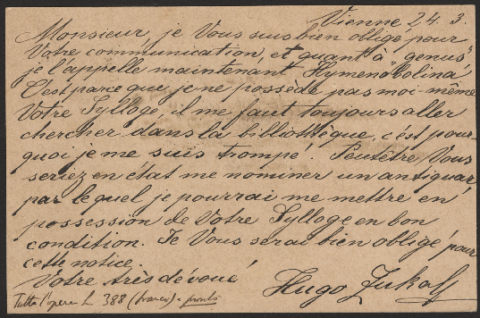 Vienne 24. 3.
Monsieur, je Vous suis bien obligé pour
Votre communication, et quant à "genus"
je l'appelle maintenant "Hymenobolina"
C'est parce que je ne possède pas moi-même
Votre Sylloge, il me faut toujours aller
chercher dans la bibliothèque, c'est pour-
quoi je me suis trompé! Peutêtre, Vous
seriez en état me nominer un antiquar
par lequel je pourrai me mettre en
possession de Votre Sylloge en bon
condition. Je Vous serai bien obligé pour
cette notice.
Votre très dévoué
Hugo Zukal
Tutta l'opera L. 388 (franco) =